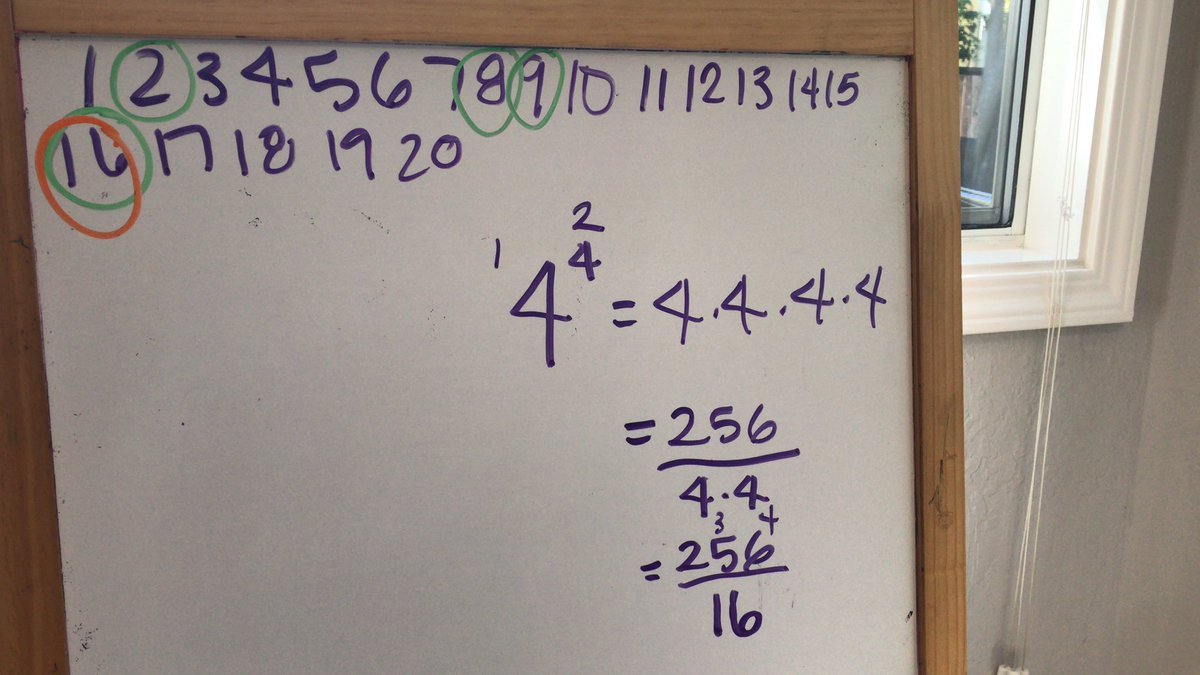 1 2 3 4 5 6 7 8 9 10 11 12 13 14 15
16 17 18 19 20
2
1 4
4 = 4.4.4.4
= 256
4.4
3 +
= 256
16